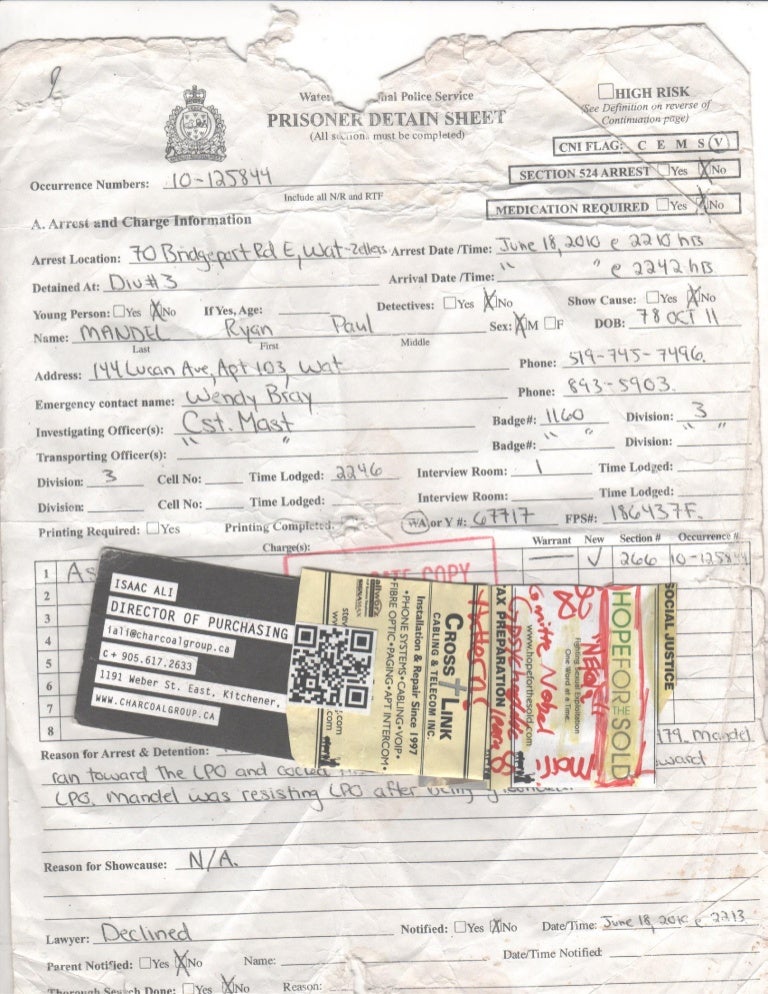 nal Police Service
PRISONER DETAIN SHEET
(All sections must be completed)
HIGH RISK
(See Definition on reverse of
Continuation page)
CNI FLAG: C E M S V
SECTION 524 ARREST Yes No
MEDICATION REQUIRED Yes No
Occurrence Numbers: 10-125844
Include all N/R and RTF
A. Arrest and Charge Information
Arrest Location: 70 Bridgeport Rd E, Wat-Zellers Arrest Date /Time: June 18, 2010 @ 2210 hrs
Detained At: Div #3 Arrival Date /Time: " " @ 2242 hrs
Young Person: Yes No If Yes, Age: Detectives: Yes No Show Cause: Yes No
Name: MANDEL Ryan Paul Sex: M F DOB: 78 OCT 11
Last First Middle
Address: 144 Lucan Ave, Apt 103, Wat Phone: 519-745-7496.
Emergency contact name: Wendy Bray Phone: 893-5903.
Investigating Officer(s): Cst. Mast Badge#: 1160 Division: 3
Transporting Officer(s): " " Badge#: " " Division: " "
Division: 3 Cell No: Time Lodged: 2246 Interview Room: 1 Time Lodged:
Division: Cell No: Time Lodged: Interview Room: Time Lodged:
Printing Required: Yes Printing Completed: WA or Y #: 67717 FPS#: 186437F.
Charge(s): Warrant New Section # Occurrence #
1 As 266 10-125844
COPY
2
3
4
5
6
7
8
ISAAC ALI
DIRECTOR OF PURCHASING
iali@charcoalgroup.ca
c + 905.617.2633
1191 Weber St. East, Kitchener,
WWW.CHARCOALGROUP.CA
allworx
www.
stev
.com
.com
•FIBRE OPTIC•PAGING•APT INTERCOM•
•PHONE SYSTEMS•CABLING•VOIP•
Installation & Repair Since 1997
CABLING & TELECOM INC.
CROSS LINK
TAX PREPARATION
www.hopeforthesold.com
Nobel
Fighting Sexual Exploitation
One Word at a Time.
HOPE FOR THE SOLD
SOCIAL JUSTICE
Reason for Arrest & Detention: Mandel
ran toward the LPO and
LPO. Mandel was resisting LPO after being
Reason for Showcause: N/A.
Lawyer: Declined Notified: Yes No Date/Time: June 18, 2010 @ 2213
Parent Notified: Yes No Name: Date/Time Notified:
Thorough Search Done: Yes No Reason: